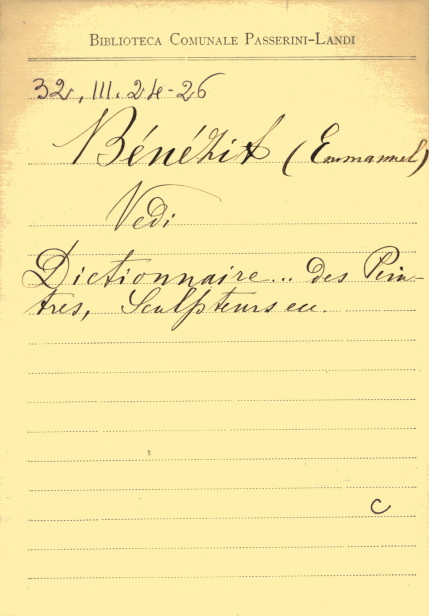 BIBLIOTECA COMUNALE PASSERINI-LANDI
32, III. 24-26
Bénézit (Emmanuel)
Vedi
Dictionnaire... des Pein-
tres, Sculpteurs ecc.
C